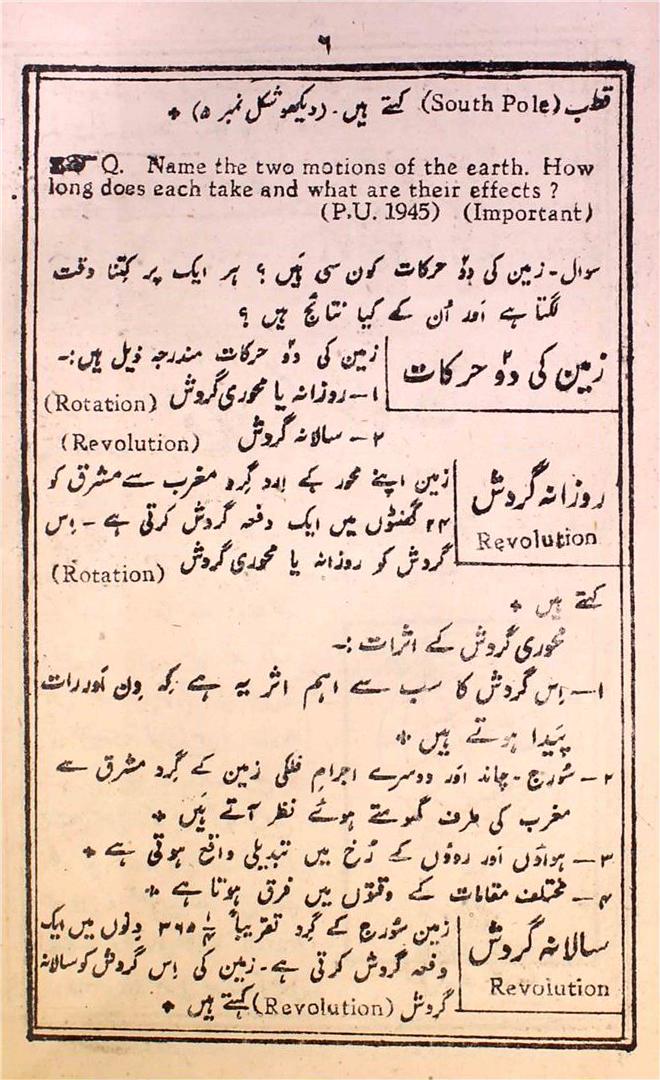 ۶
قطب (South Pole) کہتے ہیں۔ (دیکھو شکل نمبر ۵) ٭
Q. Name the two motions of the earth. How
long does each take and what are their effects ?
(P.U. 1945) (Important)
سوال۔ زمین کی دو حرکات کون سی ہیں ؟ ہر ایک پر کتنا وقت
لگتا ہے اور اُن کے کیا نتائج ہیں ؟
زمین کی دو حرکات
زمین کی دو حرکات مندرجہ ذیل ہیں:۔
۱۔ روزانہ یا محوری گردش (Rotation)
۲۔ سالانہ گردش (Revolution)
روزانہ گردش
Revolution
زمین اپنے محور کے ارد گرد مغرب سے مشرق کو
۲۴ گھنٹوں میں ایک دفعہ گردش کرتی ہے ۔ اِس
گردش کو روزانہ یا محوری گردش (Rotation)
کہتے ہیں ٭
محوری گردش کے اثرات :۔
۱۔ اِس گردش کا سب سے اہم اثر یہ ہے کہ دِن اور رات
پَیدا ہوتے ہیں ٭
۲۔ سُورج ۔ چاند اور دوسرے اجرامِ فلکی زمین کے گِرد مشرق سے
مغرب کی طرف گھومتے ہوئے نظر آتے ہَیں ٭
۳۔ ہواؤں اور روؤں کے رُخ میں تبدیلی واقع ہوتی ہے ٭
۴۔ مختلف مقامات کے وقتوں میں فرق ہوتا ہے ٭
سالانہ گردش
Revolution
زمین سُورج کے گِرد تقریباً ۳۶۵ ۱/۴ دِنوں میں ایک
دفعہ گردش کرتی ہے۔ زمین کی اِس گردش کو سالانہ
گردش (Revolution) کہتے ہیں ٭